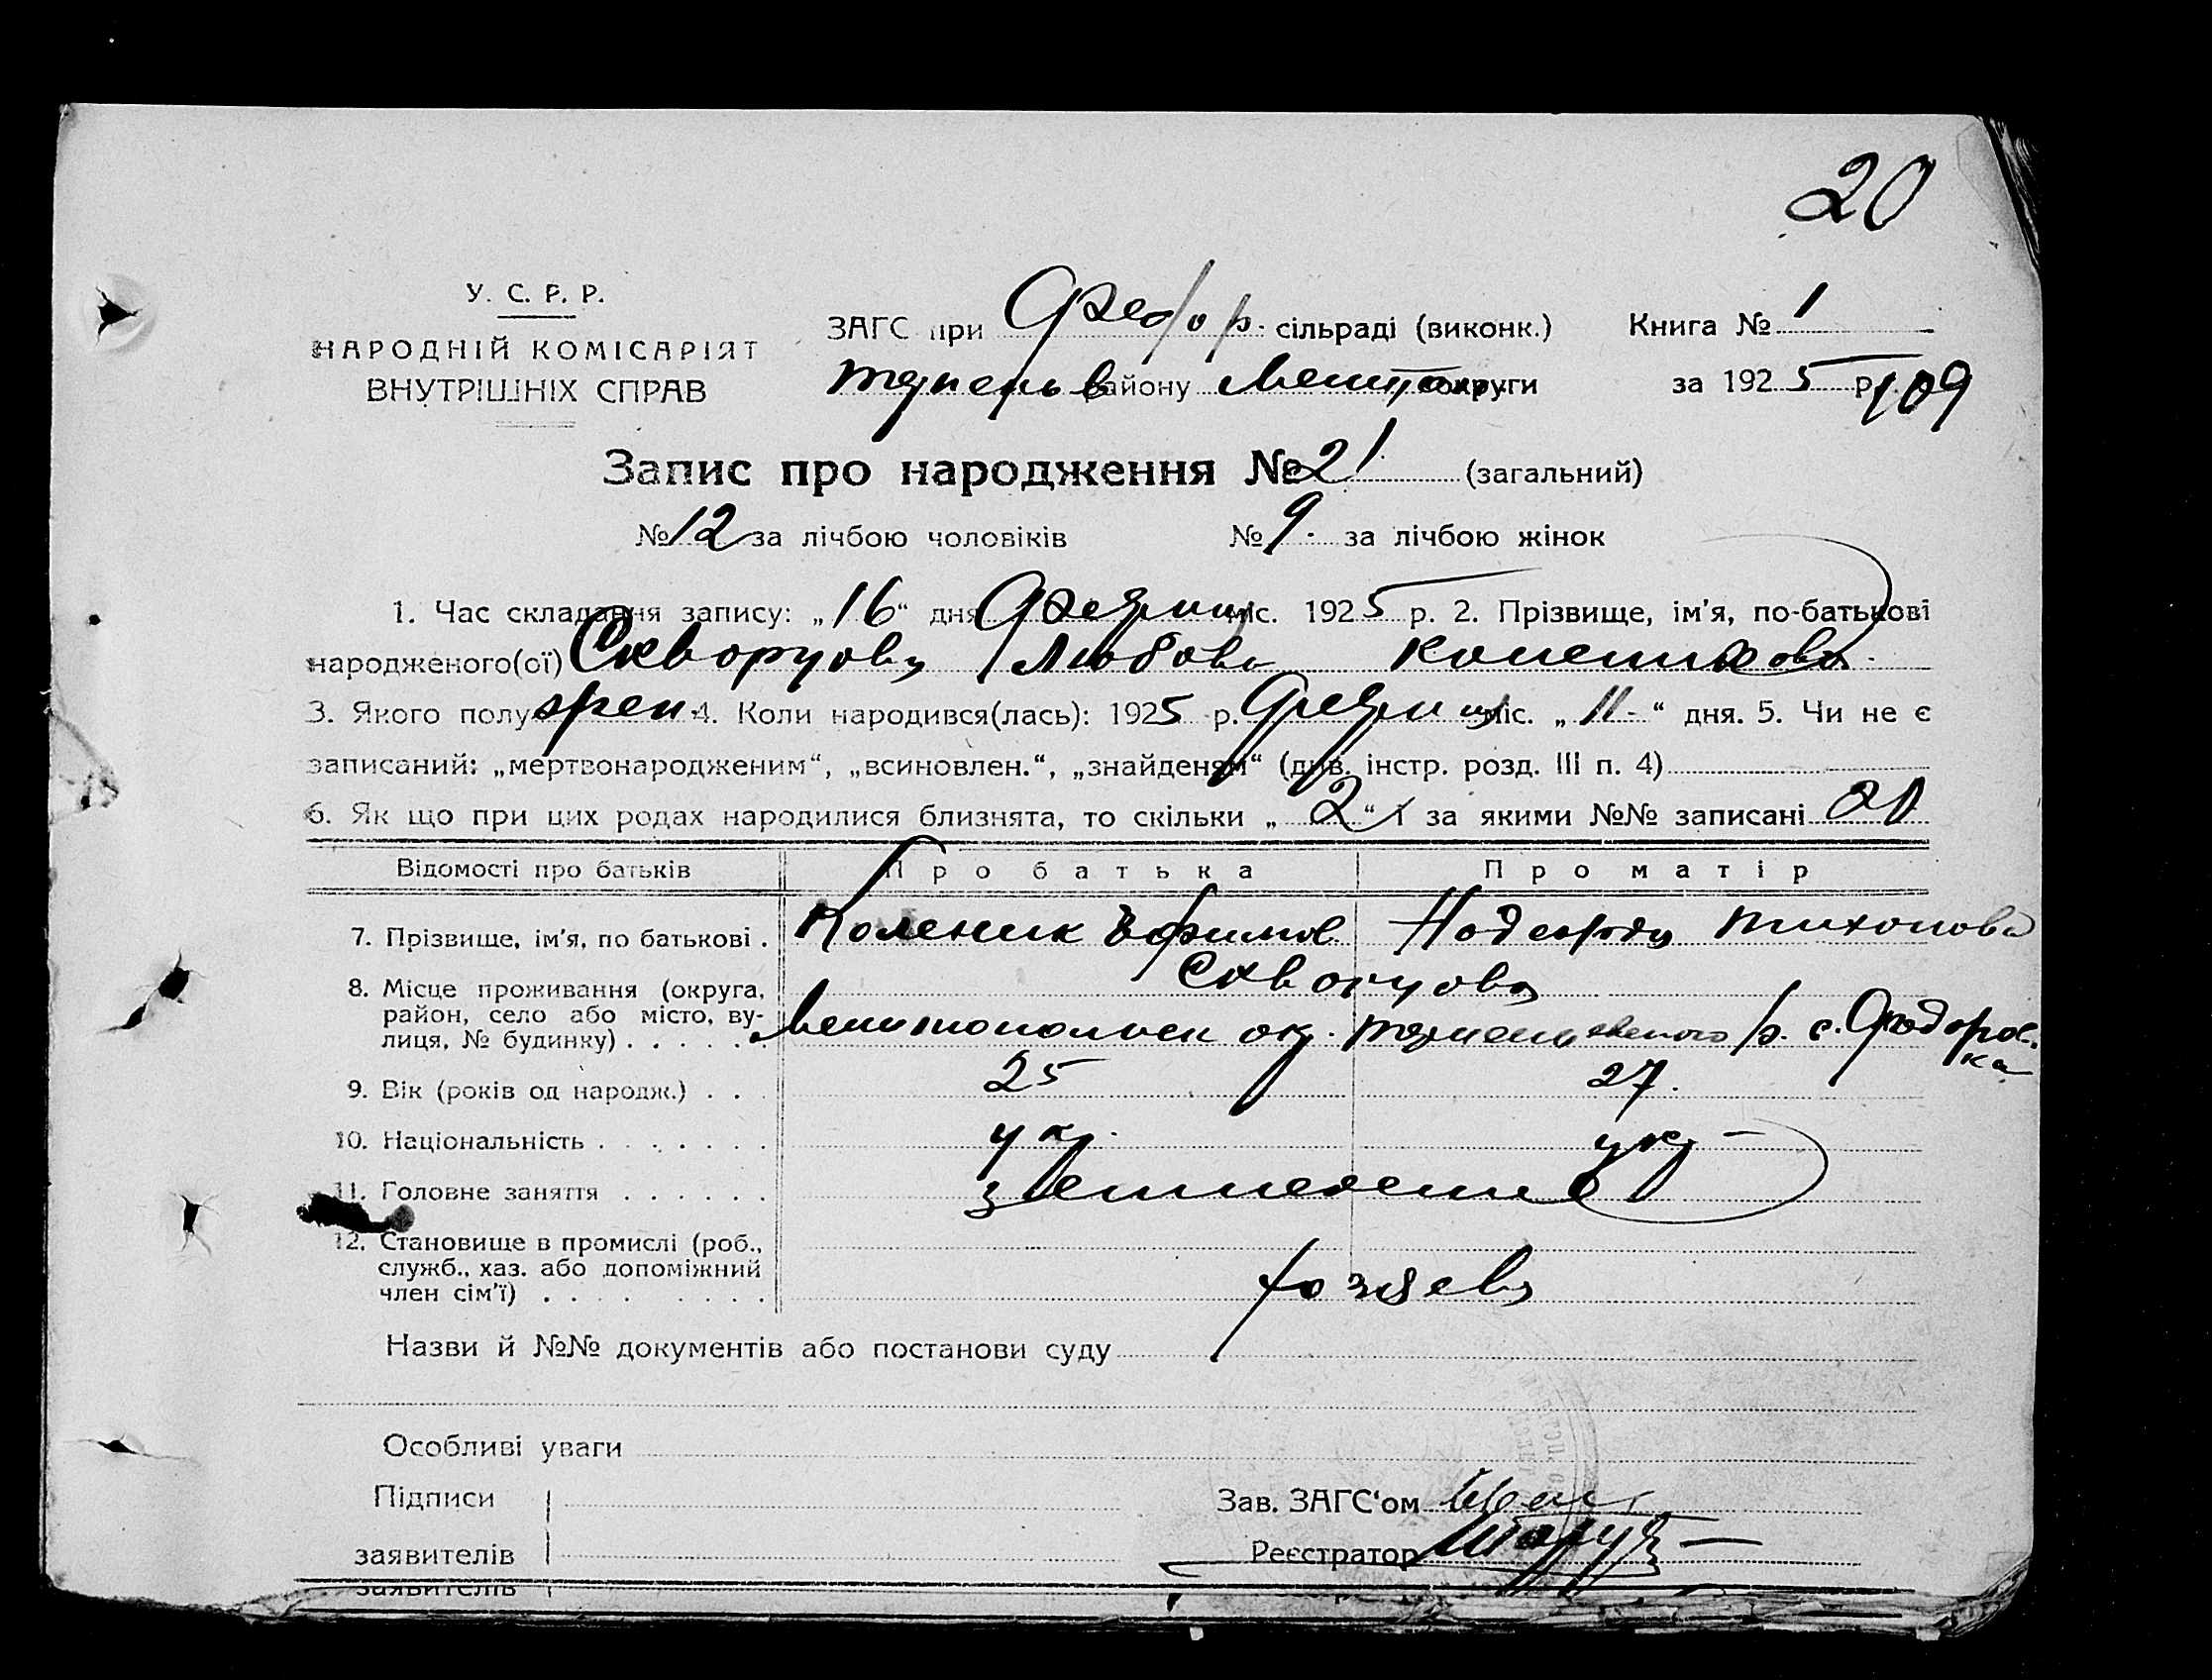 20
У. С. Р. Р.
НАРОДНІЙ КОМІСАРІЯТ
ВНУТРІШНІХ СПРАВ
ЗАГС при Федор. сільраді (виконк.)
району Мелитоп округи
Книга № 1
за 1925 р. 109
Запис про народження № 21 (загальний)
№ 12 за лічбою чоловіків № 9. за лічбою жінок
1. Час складання запису: „16“ дня міс. 1925 р. 2. Прізвище, ім'я, по-батькові
народженого(ої) Скворцова Любовь
3. Якого полу жен. 4. Коли народився(лась): 1925 р. міс. „11“ дня. 5. Чи не є
записаний: „мертвонародженим“, „всиновлен.“, „знайденям“ (див. інстр. розд. III п. 4)
6. Як що при цих родах народилися близнята, то скільки „2“ і за якими №№ записані
Відомості про батьків Про батька Про матір
7. Прізвище, ім'я, по батькові . Коленик Ефимов Тихонова
Скворцова
8. Місце проживання (округа,
район, село або місто, ву-
лиця, № будинку) . . . . . . Мелитопольск окр. р. с. Федоров.
ка
9. Вік (років од народж.) . . . 25 27.
10. Національність . . . . . . . укр. укр
11. Головне заняття . . . . . .
12. Становище в промислі (роб.,
служб., хаз. або допоміжний
член сім'ї) . . . . . . . . хозяева
Назви й №№ документів або постанови суду
Особливі уваги
Підписи
заявителів
Зав. ЗАГС'ом
Реєстратор
заявителів